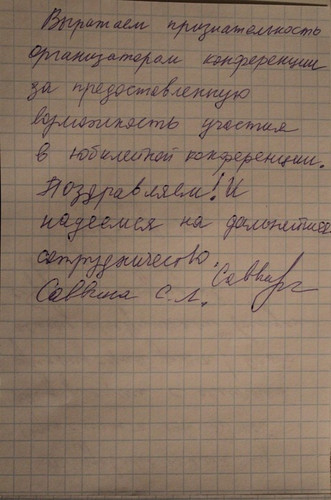 Выражаем признательность
организаторам конференции
за предоставленную
возможность участия
в юбилейной конференции.
Поздравляем! И
надеемся на дальнейшее
сотрудничество.
Саввина С. Л.